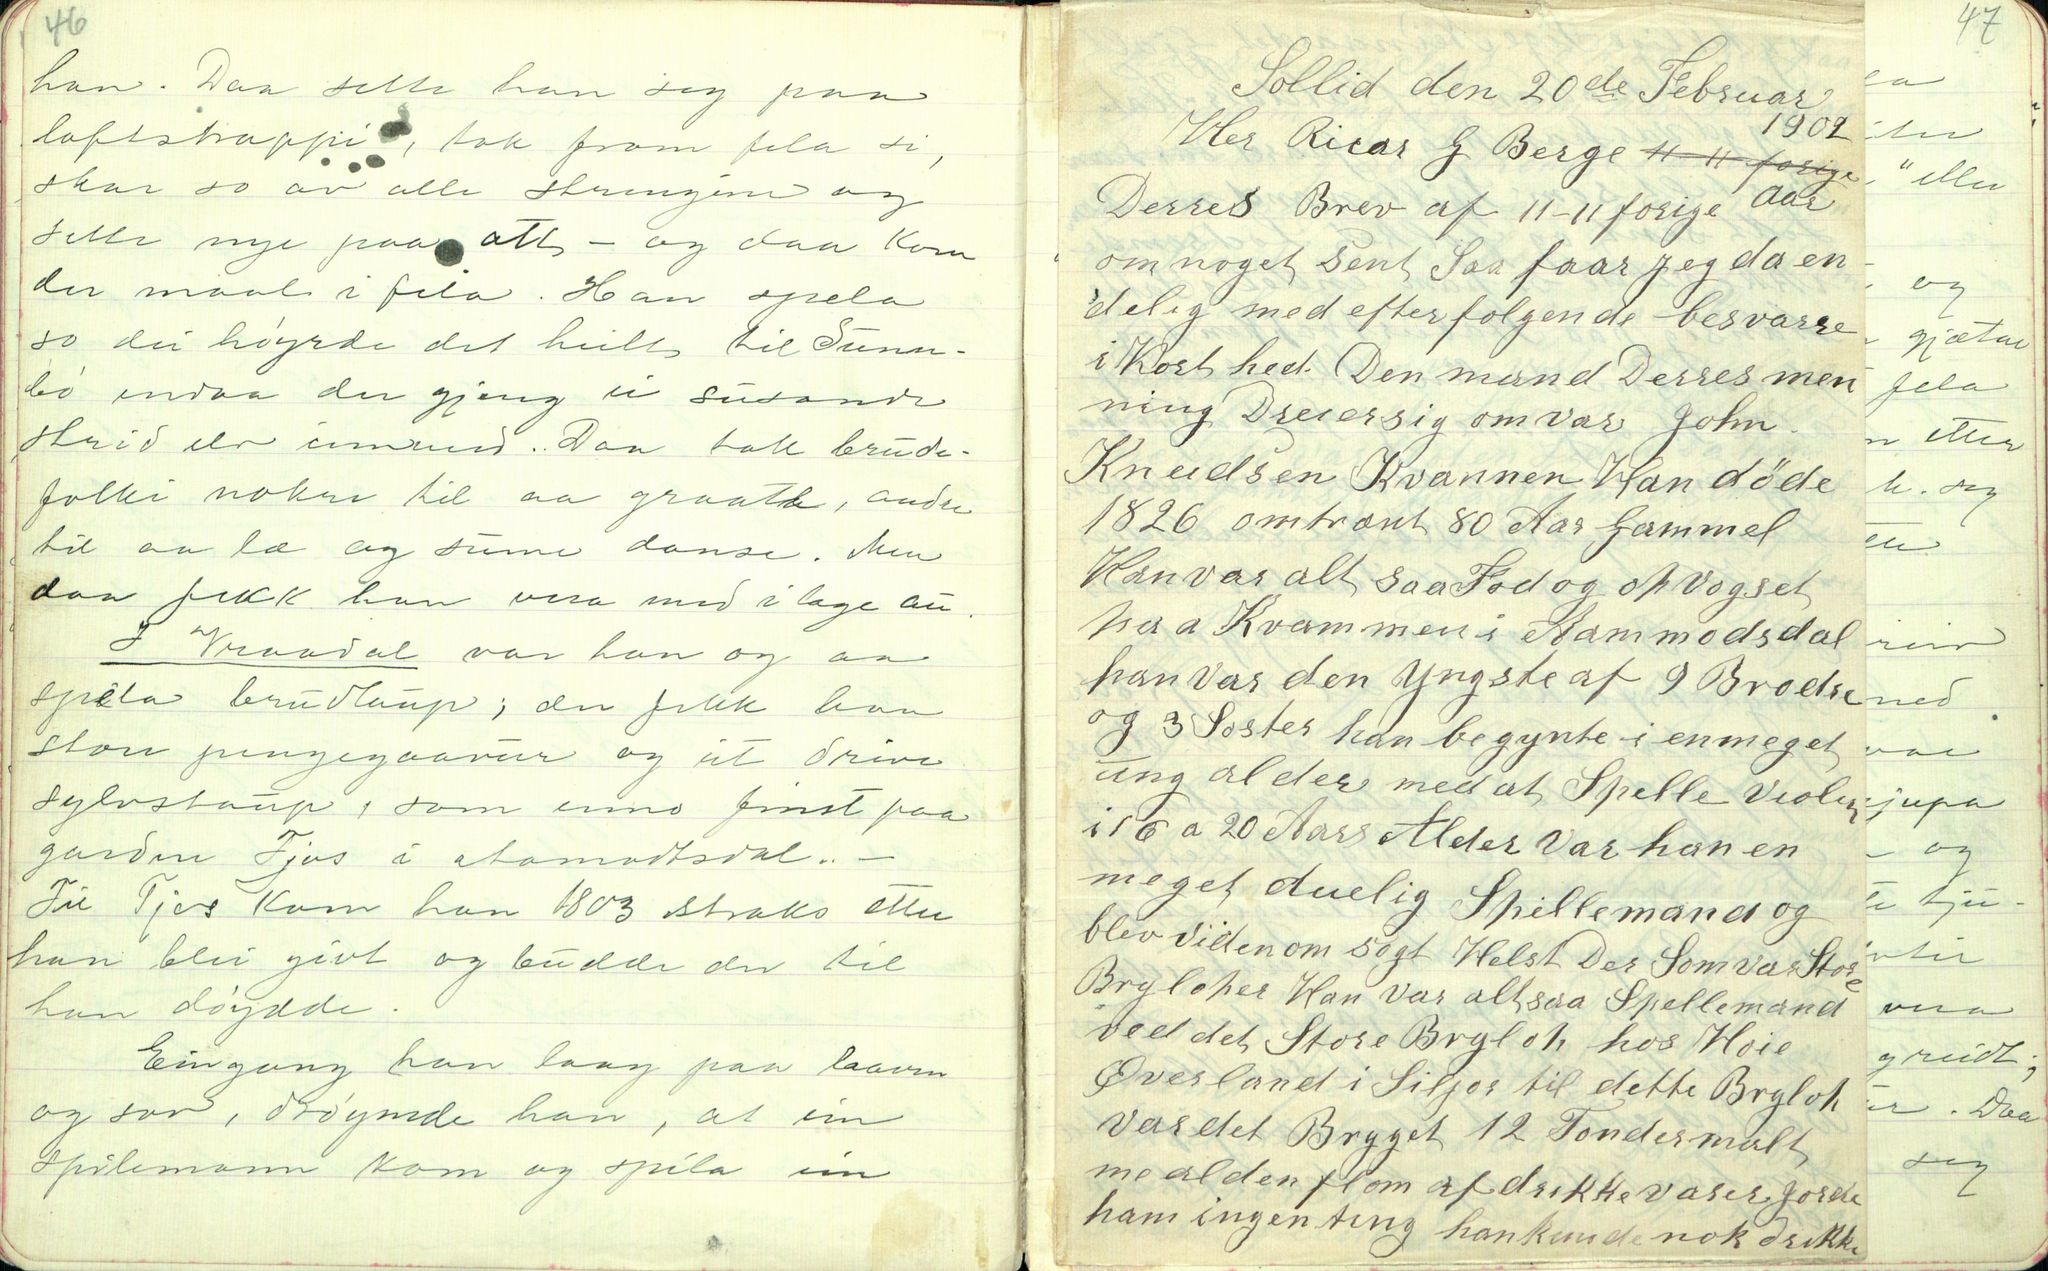 46
han. Daa sette han seg paa
loftstrappi, tok fram fela si,
skar so av alle strengjine og
sette nye paa att, – og daa kom
der maal i fela. Han spela
so dei höyrde det heilt til Sunn-
bö endaa der gjeng ei susande
strid elv imeud. Daa tok brude-
folki nokre til aa graate, andre
til aa læ og sume danse. Men
daa fekk han vera med i lage au.
I Vraadal var han og aa
spela brudlaup; der fekk han
store pengegaavur og eit drive
sylvstaup, som enno finst paa
garden Fjos i Aamodtsdal. –
Til Fjos kom han 1803 straks etter
han blei givt og budde der til
han döydde.
Eingong han laag paa laaven
og sov, dröymde han, at ein
spilemann kom og spila ein
Sollid den 20de Februar
1902
Her Ricar G Berge 11 11 forige
Derres Brev af 11-11 forige Aar
om noget sent Saa faar jeg da en
delig med efterfolgende besvarre
i Kort hed. Den mand Derres men
ning Dreiersig om var John
Knudsen Kvannen Han döde
1826 omtrænt 80 Aar Gammel
Han var alt saa Fod og op vogset
paa Kvammen i Aammodsdal
han var den Yngste af 9 Brodre
og 3 Soster han begynte i en meget
ung alder med at Spelle Violin
i 16 a 20 Aars Alder var han en
meget duelig Spillemand og
blev viden om sogt Helst Der Som var Store
Bryloper Han var altsaa Spellemand
ved det Store Brylop hos Hoie
Øverland i Siljor til dette Brylop
var det Brygget 12 Tonder malt
me al den flom af drikke varer Gorde
ham ingen ting han kunde nok drikke
47
" eller
og
gjætar
fela
etter
seg
ned
jupa
og
vera
greidt;
Daa
seg